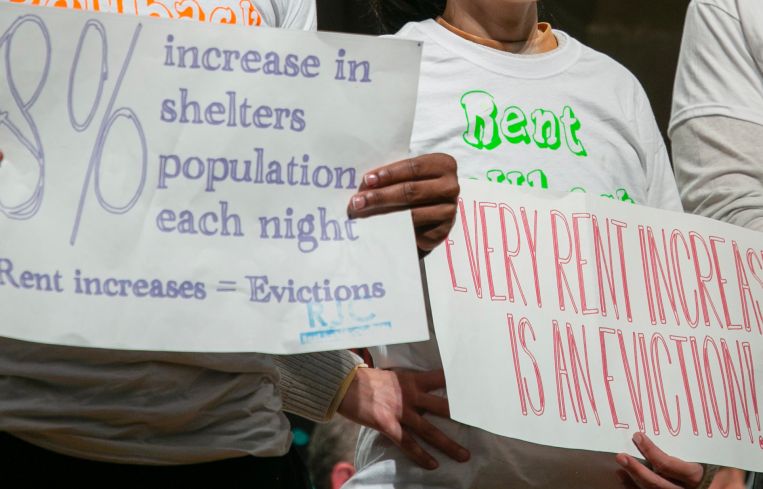 8%
increase in
shelters
population
each night
Rent increases = Evictions
RJC
Rent
EVERY RENT INCREAS
IS AN EVICTION!